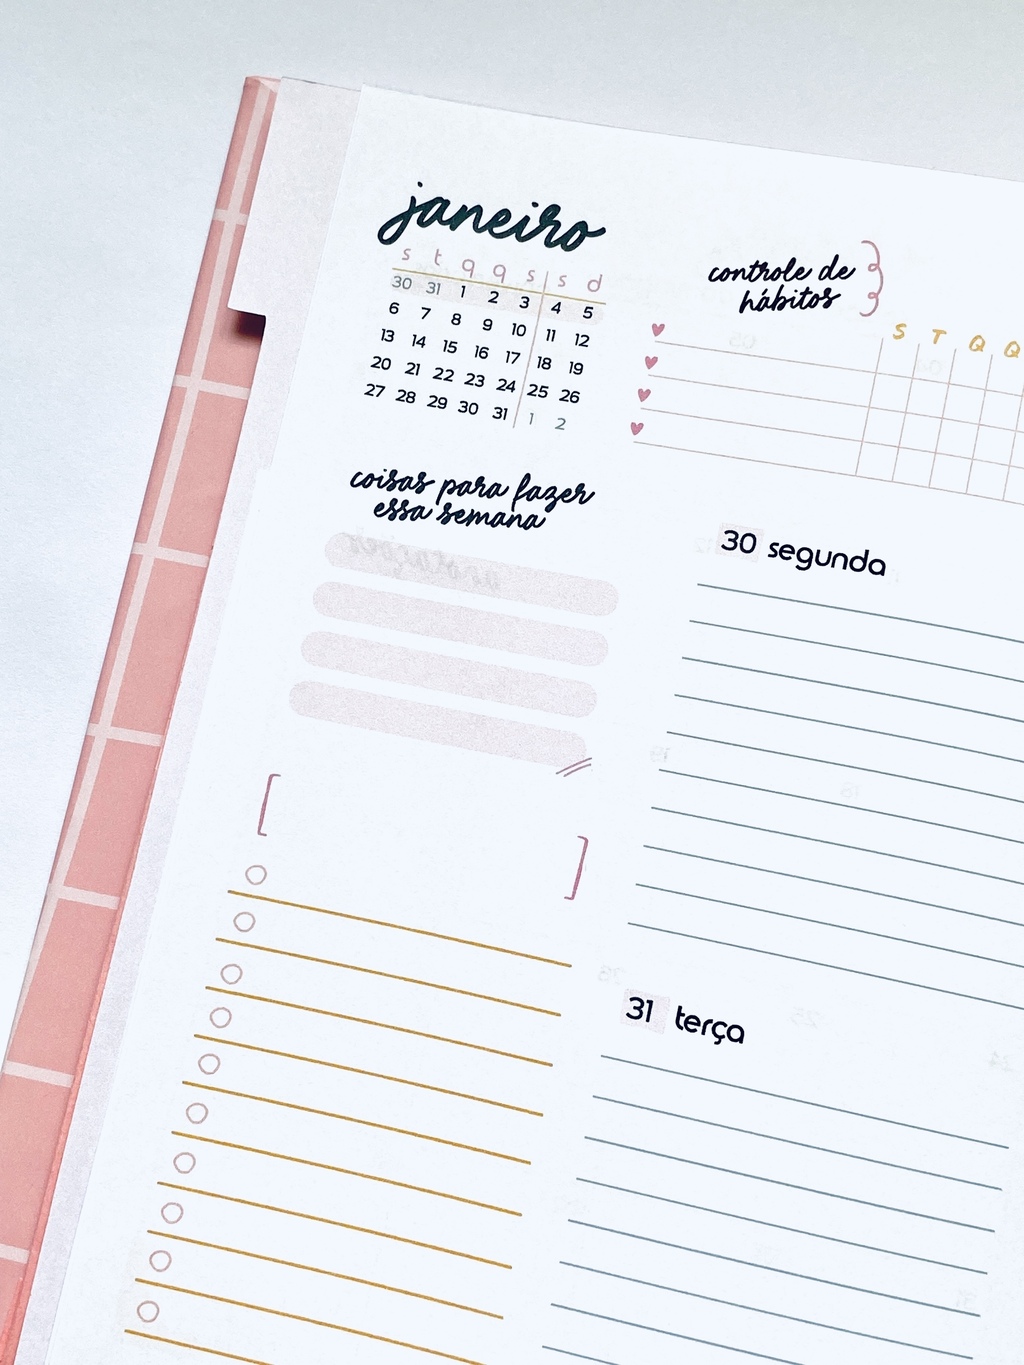 janeiro
s t q q s s d
30 31 1 2 3 4 5
6 7 8 9 10 11 12
13 14 15 16 17 18 19
20 21 22 23 24 25 26
27 28 29 30 31 1 2
controle de
hábitos
S T Q Q
coisas para fazer
essa semana
30 segunda
31 terça